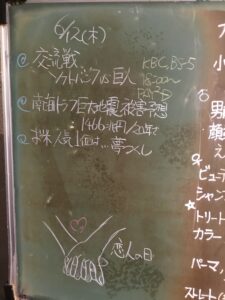 6/12(木)
交流戦
ソフトバンク VS 巨人
KBC, BS-5
18:00〜
南海トラフ巨大地震被害予想
お米人気1位は…夢つくし
恋人の日
小
男
顔
え
ビューテ
シャン
★トリート
カラー
パーマ,
ストレート(